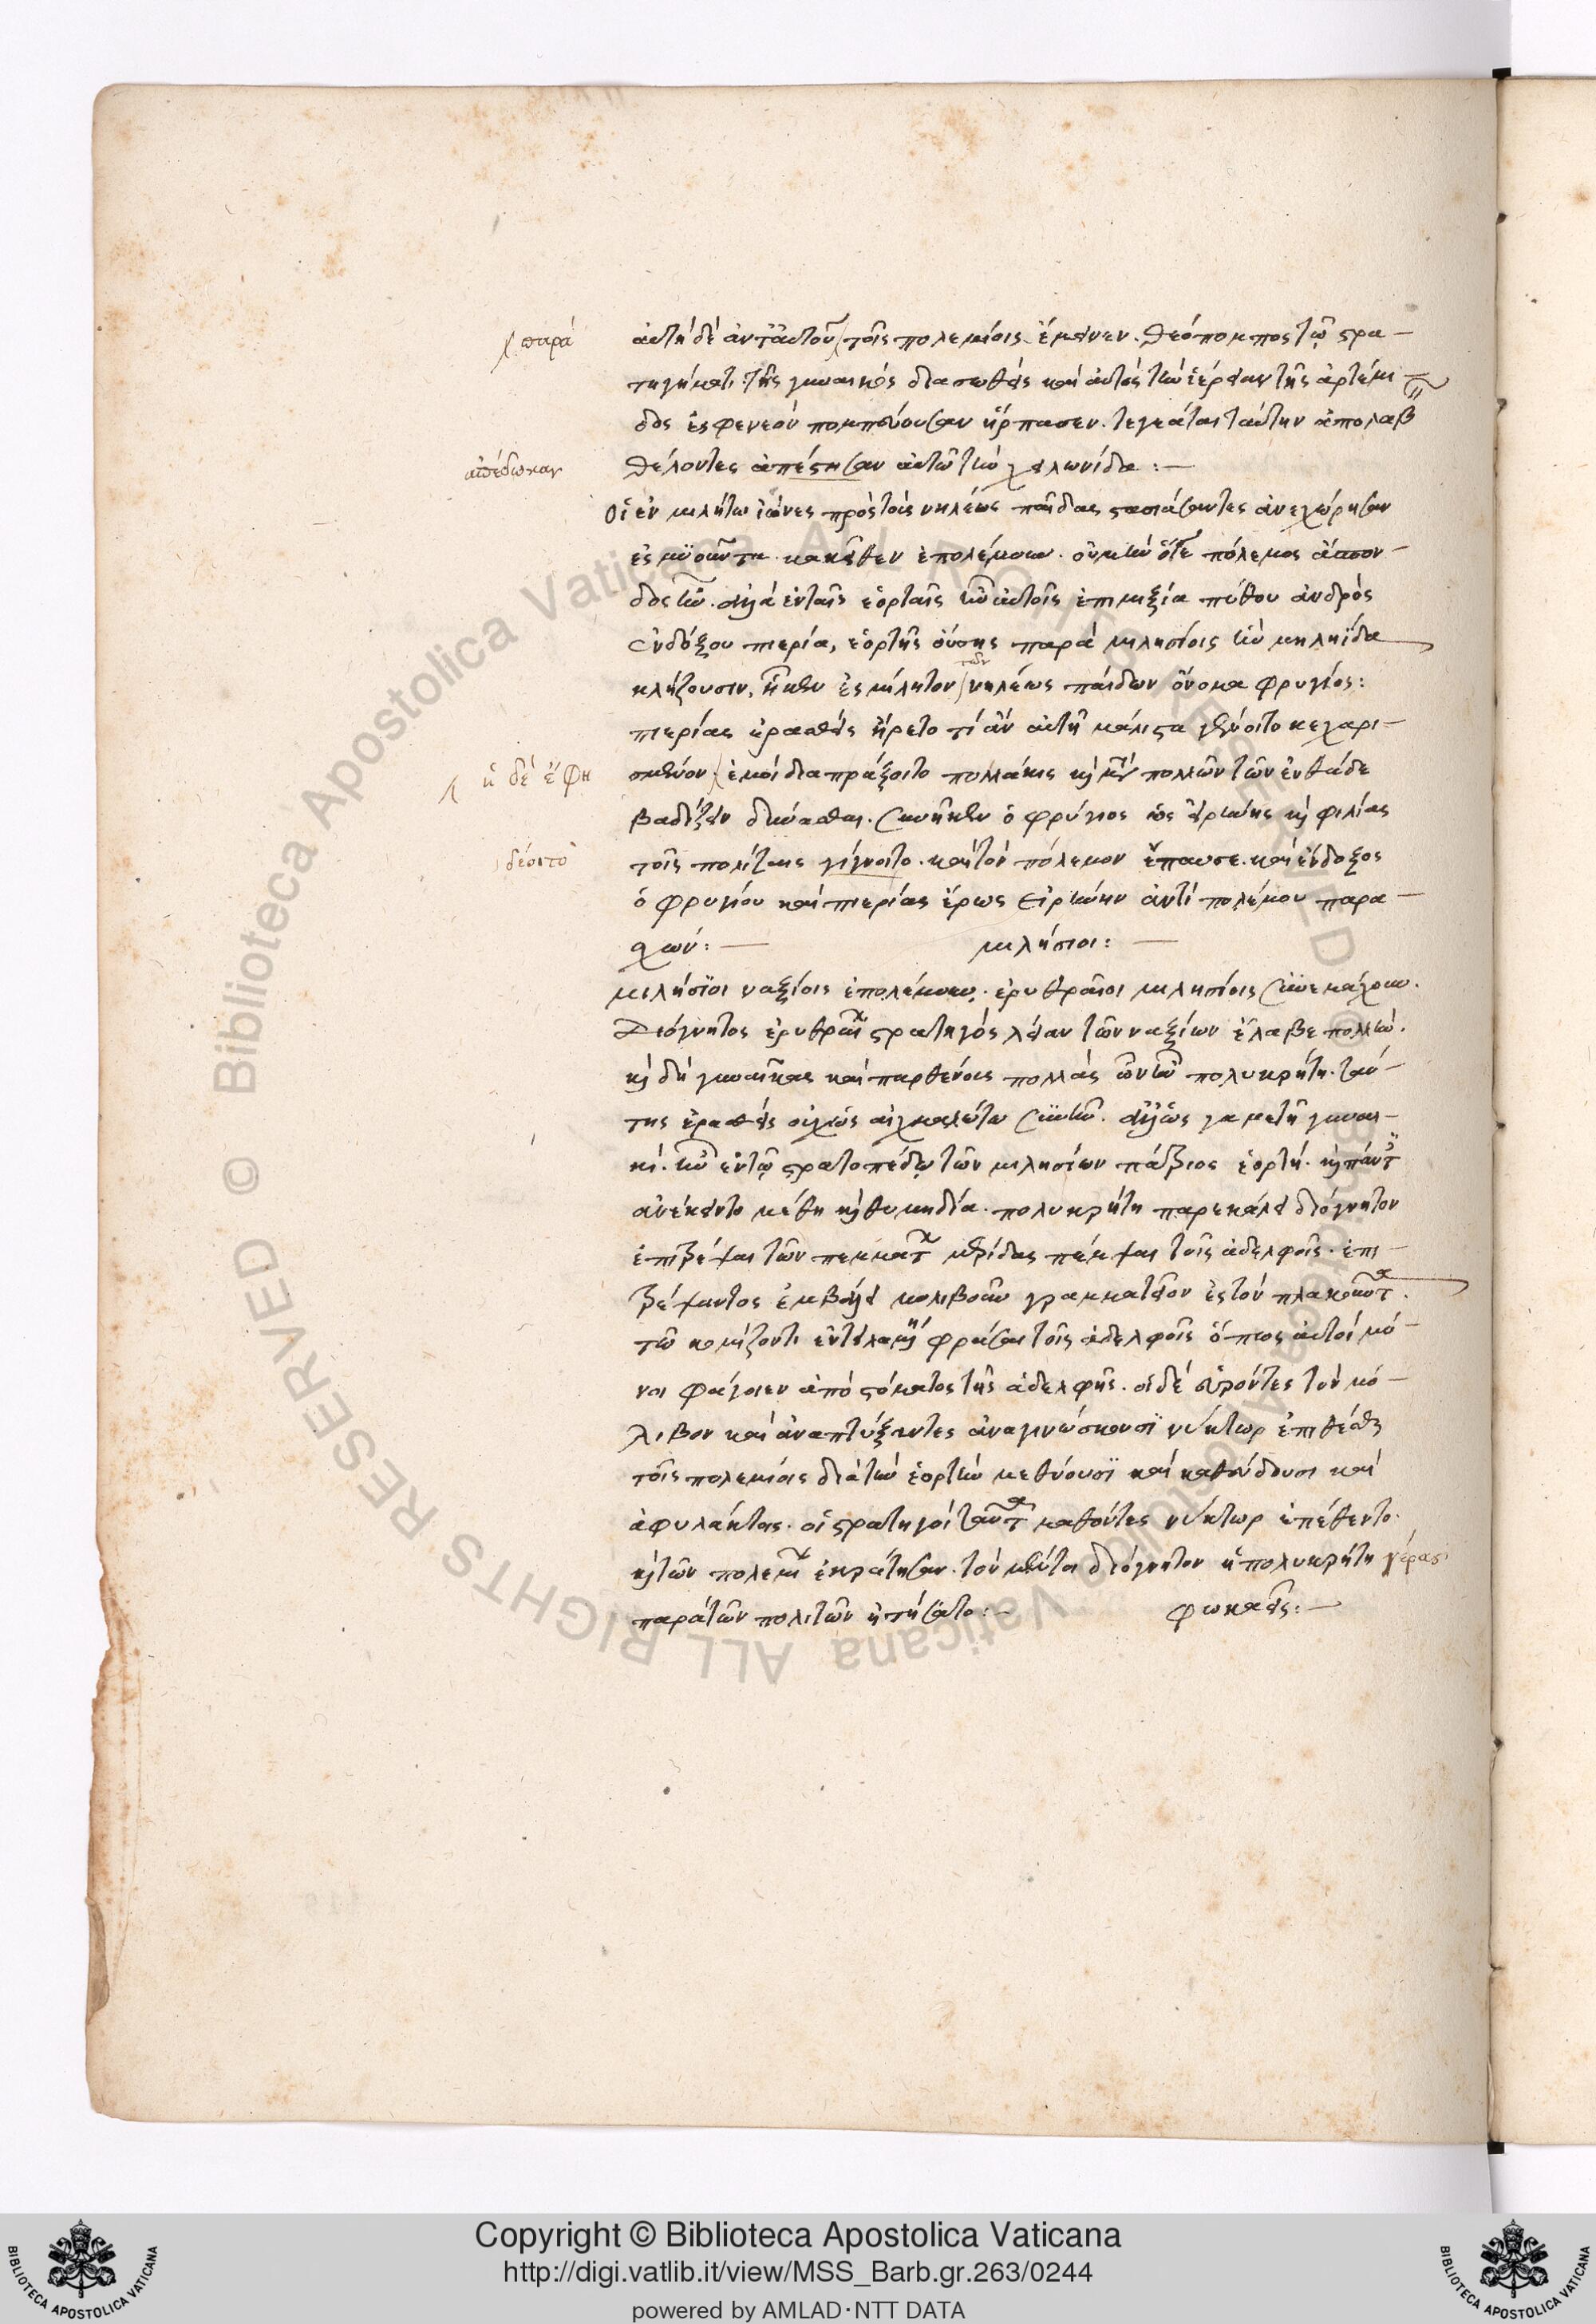 παρά
αὐτὴ δὲ ἀντ' αὐτοῦ τοῖς πολεμίοις ἔμεινεν. Θεόπομπος τῷ στρα-
τηγήματι τῆς γυναικὸς διασωθεὶς καὶ αὐτὸς τὴν ἱέρειαν τῆς ἀρτέμι-
δος ἐς φενεὸν πομπεύουσαν ἥρπασεν. τεγεάται ταύτην ἀπολαβ
ἀπέδωκαν
θέλοντες ἀπέστησαν αὐτῶ τὴν χειλωνίδα :—
Οἱ ἐν μιλήτω ἰώνες πρὸς τοὺς νηλέως παῖδας στασιάσαντες ἀνεχώρησαν
ἐς μϋοῦντα κακεῖθεν ἐπολέμουν. οὐ μὴν ὅγε πόλεμος ἄσπον-
δος ἦν. ἀλλὰ ἐν ταῖς ἑορταῖς ἦν αὐτοῖς ἐπιμιξία πύθου ἀνδρὸς
ἐνδόξου πιερία, ἑορτῆς οὔσης παρὰ μιλησίοις ἣν μηληΐδα
κλήζουσιν, ἧκεν ἐς μίλητον τῶν νηλέως παίδων ὄνομα φρυγίος:
πιερίας ἐρασθεὶς ἤρετο τί ἂν αὐτῆ μάλιστα γένοιτο κεχαρι-
ἡ δὲ ἔφη
σμένον ἐμοὶ διαπράξοιτο πολλάκις καὶ μετὰ πολλῶν τῶν ἐνθάδε
βαδίζειν δύνασθαι. συνῆκεν ὁ φρύγιος ὡς εἰρήνης καὶ φιλίας
δέοιτο
τοῖς πολίταις γίγνοιτο. καὶ τὸν πόλεμον ἔπαυσε. καὶ ἔνδοξος
ὁ φρυγίου καὶ πιερίας ἔρως εἰρήνην ἀντὶ πολέμου παρα-
σχών: — μιλήσιοι: —
μιλήσϊοι ναξίοις ἐπολέμουν. ἐρυθραῖοι μιλησίοις συνεμάχουν.
Διόγνητος ἐρυθραί στρατηγὸς λείαν τῶν ναξίων ἔλαβε πολλήν.
καὶ δὴ γυναῖκας καὶ παρθένους πολλὰς ὧν ἦν πολυκρήτη. ταύ-
της ἐρασθεὶς οὐχ ὡς αἰχμαλώτω συνῆν. ἀλλ' ὡς γαμετῆ γυναι-
κί. ἦν ἐν τῶ στρατοπέδω τῶν μιλησίων πάτριος ἑορτή. καὶ πάντ
ἀνέκειντο μέθη καὶ θυμηδία. πολυκρήτη παρεκάλει διόγνητον
ἐπιτρέψαι τῶν πεμματ μερίδας πέμψαι τοῖς ἀδελφοῖς. ἐπι-
τρέψαντος ἐμβάλλει μολιβοῦν γραμματεῖον ἐς τὸν πλακοῦντα.
τῶ κομίζοντι ἐντειλαμ φράσαι τοῖς ἀδελφοῖς ὅπως αὐτοὶ μό-
νοι φάγοιεν ἀπὸ στόματος τῆς ἀδελφῆς. οἱ δὲ εὑρόντες τὸν μό-
λιβον καὶ ἀναπτύξαντες ἀναγινώσκουσϊ νύκτωρ ἐπιθέσθαι
τοῖς πολεμίοις διὰ τὴν ἑορτὴν μεθύουσϊ καὶ καθεύδουσι καὶ
ἀφυλάκτοις. οἱ στρατηγοὶ ταῦτα μαθόντες νύκτωρ ἐπέθεντο.
καὶ τῶν πολεμί ἐκράτησαν. τὸν μέντοι διόγνητον ἡ πολυκρήτη γέρας
παρὰ τῶν πολιτῶν ἠτήσατο :— φωκαεῖς: —
Copyright © Biblioteca Apostolica Vaticana
http://digi.vatlib.it/view/MSS_Barb.gr.263/0244
powered by AMLAD·NTT DATA